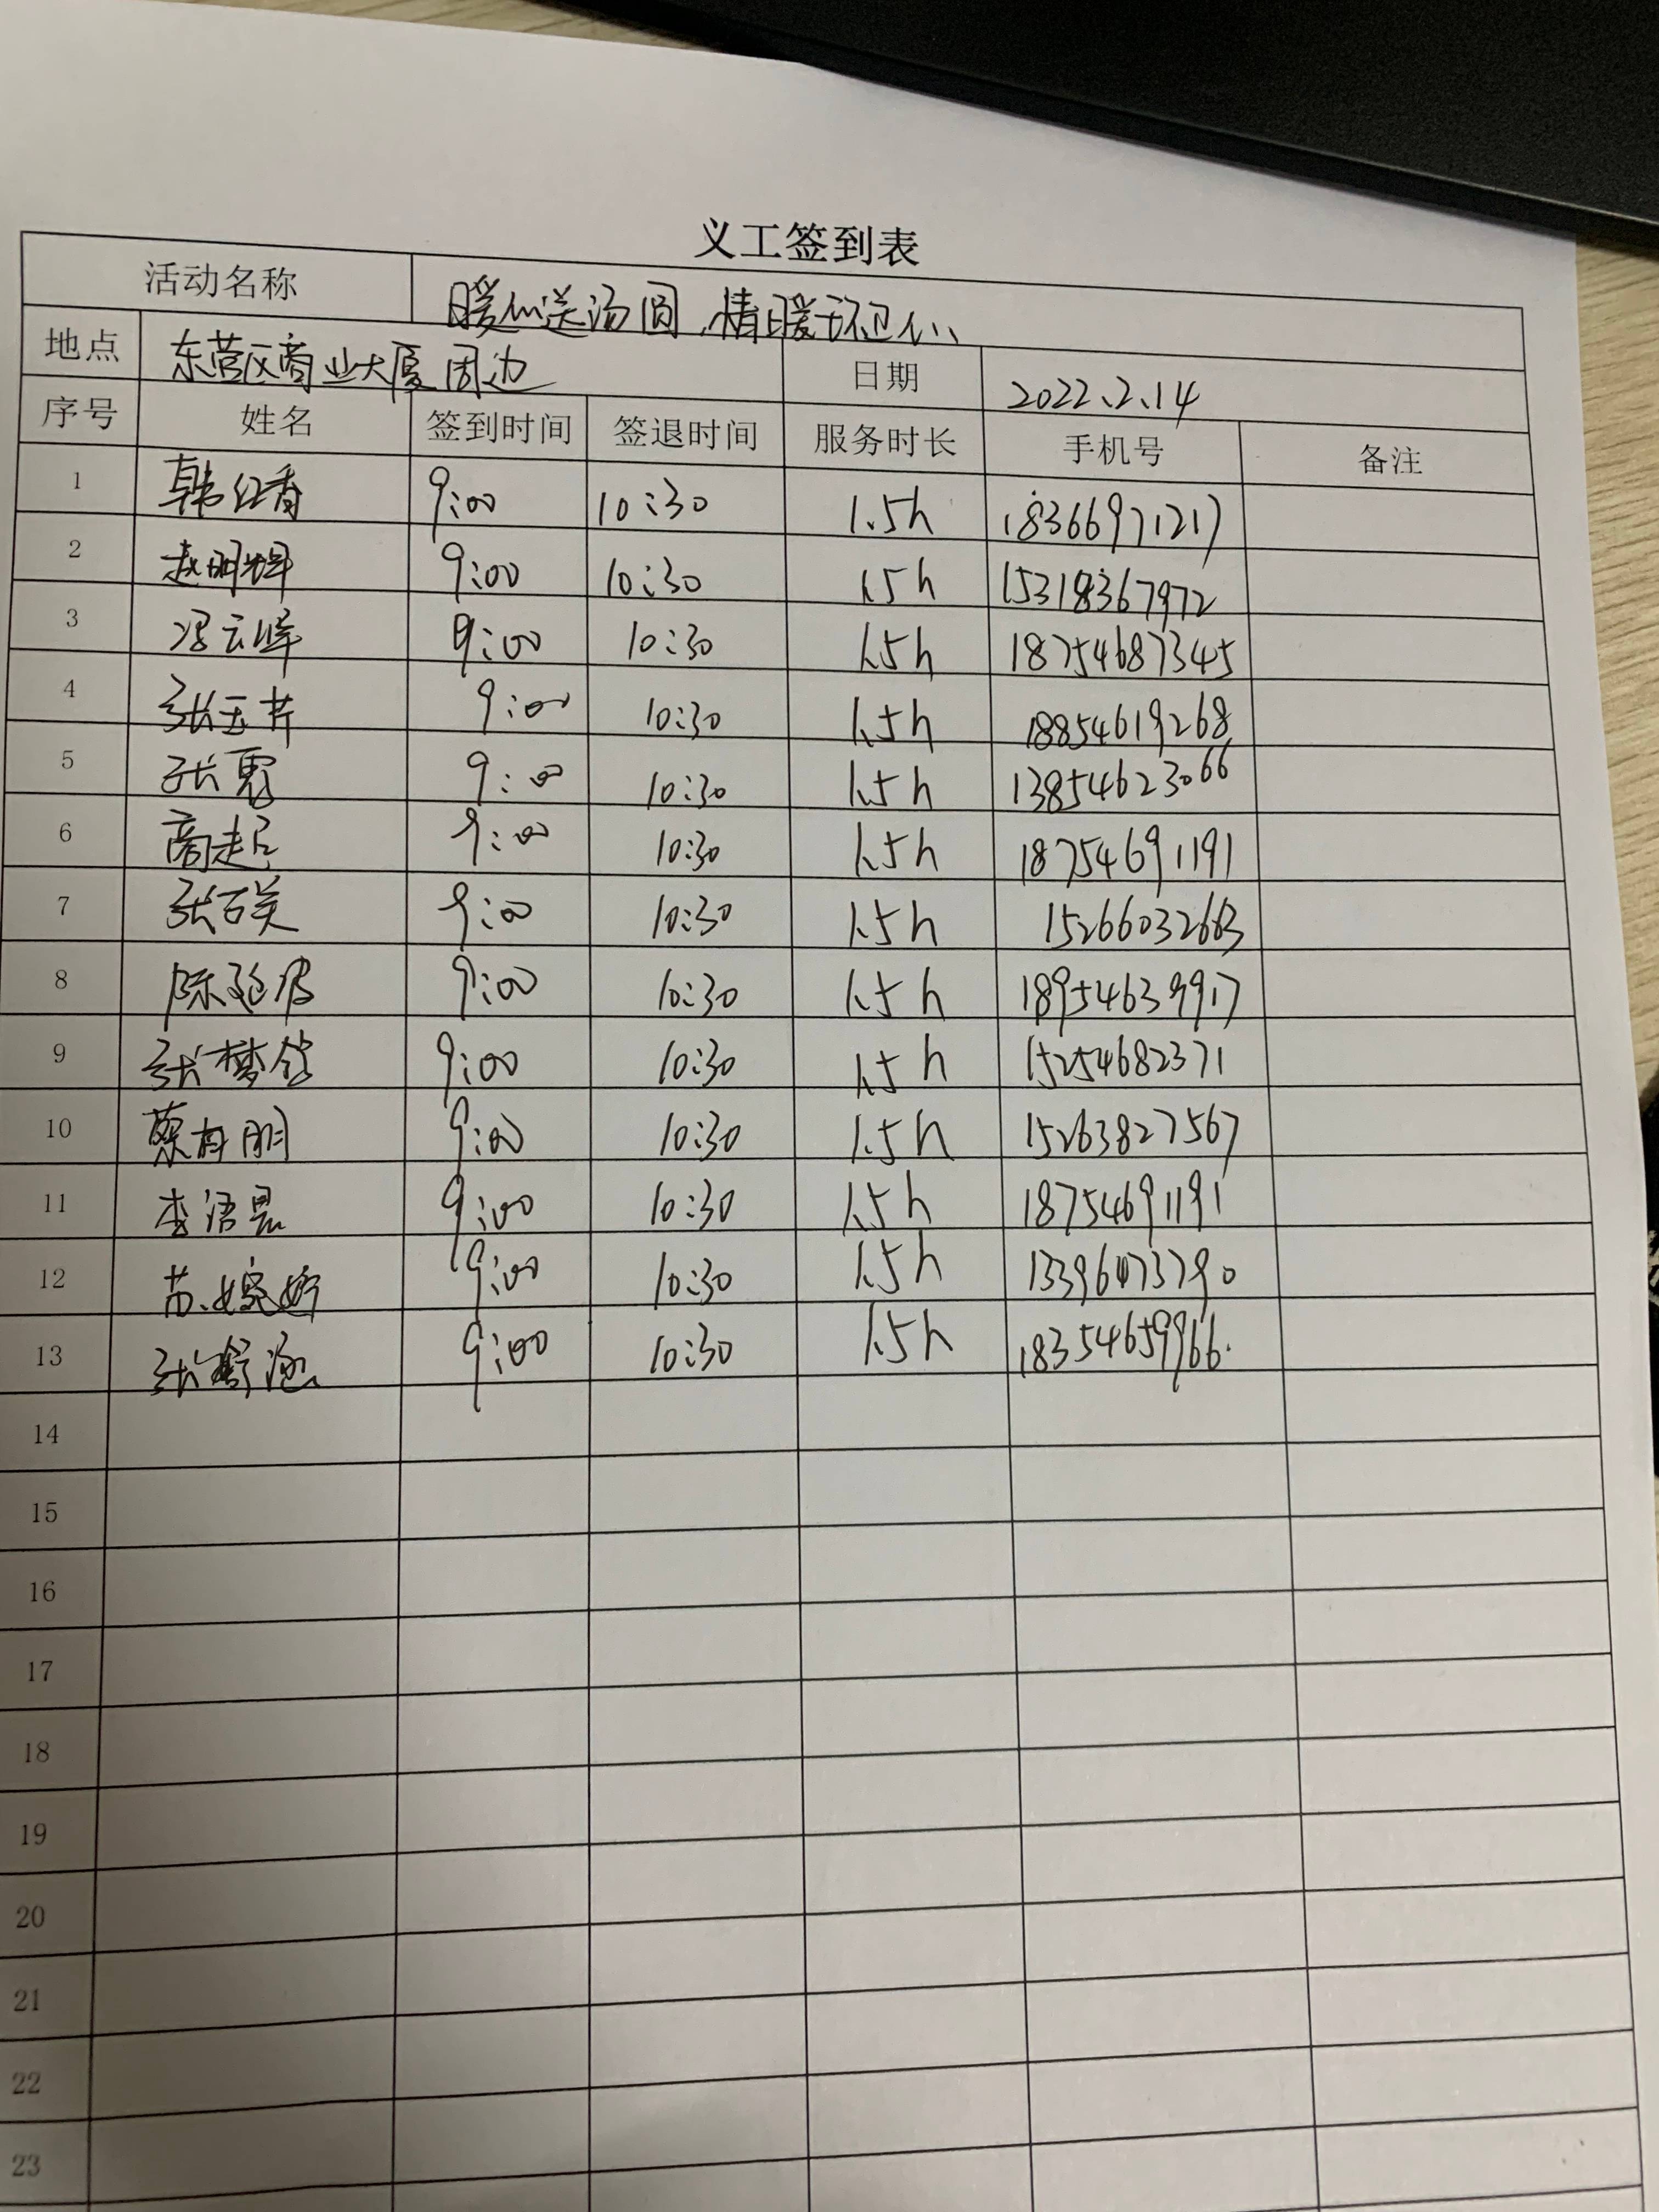 义工签到表
活动名称 暖心送汤圆,情暖环卫心
地点 东营区商业大厦周边 日期 2022.2.14
序号 姓名 签到时间 签退时间 服务时长 手机号 备注
1 韩红香 9:00 10:30 1.5h 18366971217
2 赵明辉 9:00 10:30 1.5h 15318367972
3 冯云峰 9:00 10:30 1.5h 18754687345
4 张玉芹 9:00 10:30 1.5h 18854619268
5 张勇 9:00 10:30 1.5h 13854623066
6 商起 9:00 10:30 1.5h 18754691191
7 张百关 9:00 10:30 1.5h 15266032663
8 陈延波 9:00 10:30 1.5h 18954639917
9 张梦 9:00 10:30 1.5h 15254682371
10 蔡丹丹 9:00 10:30 1.5h 15263827567
11 李语昊 9:00 10:30 1.5h 18754691191
12 苗婉婷 9:00 10:30 1.5h 13396473790
13 张舒涵 9:00 10:30 1.5h 18354659966
14
15
16
17
18
19
20
21
22
23